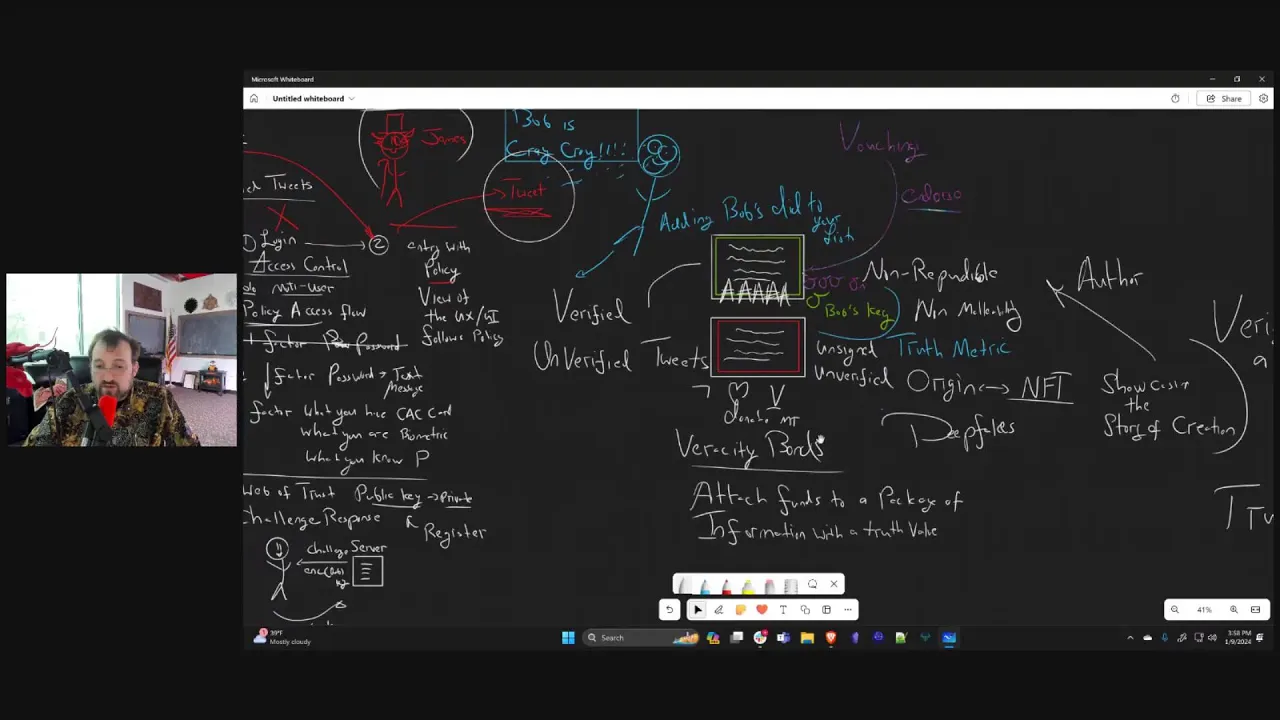 Microsoft Whiteboard
Untitled whiteboard
Share
James
Bob is
Cray Cray!!!
Tweet
Tweets
Vouching
Cadano
Adding Bob's did to
your
list
Login
2
entry with
Policy
Access Control
Policy Access flow
View of
the UX/UI
follows Policy
factor Password
factor Password → Text
Message
factor What you have CAC Card
What you are Biometric
What you know P
Web of Trust Public key → Private
Challenge Response
Register
Challenge
Server
Verified
UnVerified Tweets
AAAAA
Bob's key
unsigned
unverified
Truth Metric
Non-Repudible
Non Mallability
Origin → NFT
Deepfakes
Author
Showcasin
the
Story of Creation
donate MT
Veracity Bonds
Attach funds to a Package of
Information with a truth Value
41%
39°F
Mostly cloudy
Search
3:58 PM
1/9/2024